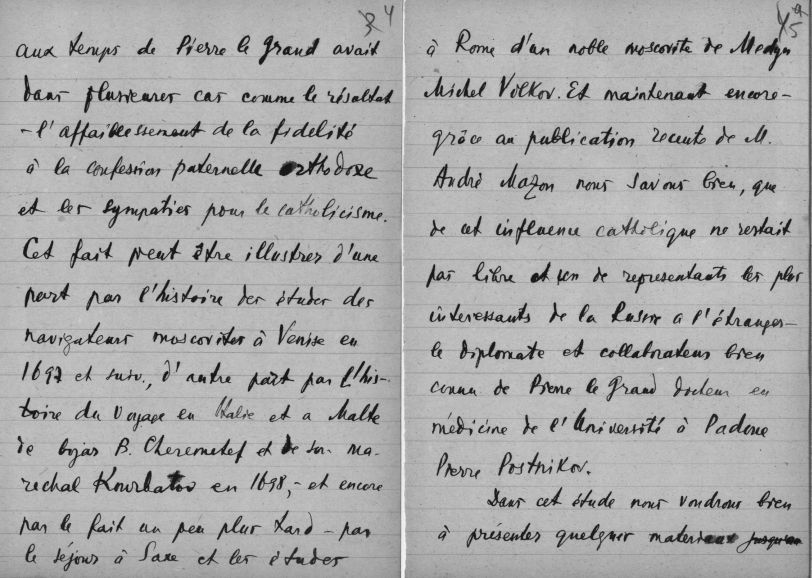 4
aux temps de Pierre le Grand avait
dans plusieures cas comme le résultat
- l'affaiblessement de la fidelité
à la confession paternelle orthodoxe
et les sympaties pour le catholicisme.
Cet fait peut être illustrer d'une
part par l'histoire des études des
navigateurs moscovites à Venise en
1697 et suiv., d'autre part par l'his-
toire du voyage en Italie et a Malte
de bojar B. Cheremetef et de son ma-
rechal Kourbatov en 1698, - et encore
par le fait un peu plus tard - par
le séjour à Saxe et les études
5
à Rome d'un noble moscovite de
Michel Volkov. Et maintenant encore -
grâce au publication recente de M.
André Mazon nous savons bien, que
de cet influence catholique ne restait
pas libre et un de representants les plus
interessants de la Russie a l'étranger -
le diplomate et collaborateur bien
connu de Pierre le Grand docteur en
médicine de l'Université à Padoue
Pierre Postnikov.
Dans cet étude nous voudrons bien
à présenter quelques materiaux jusqu'au